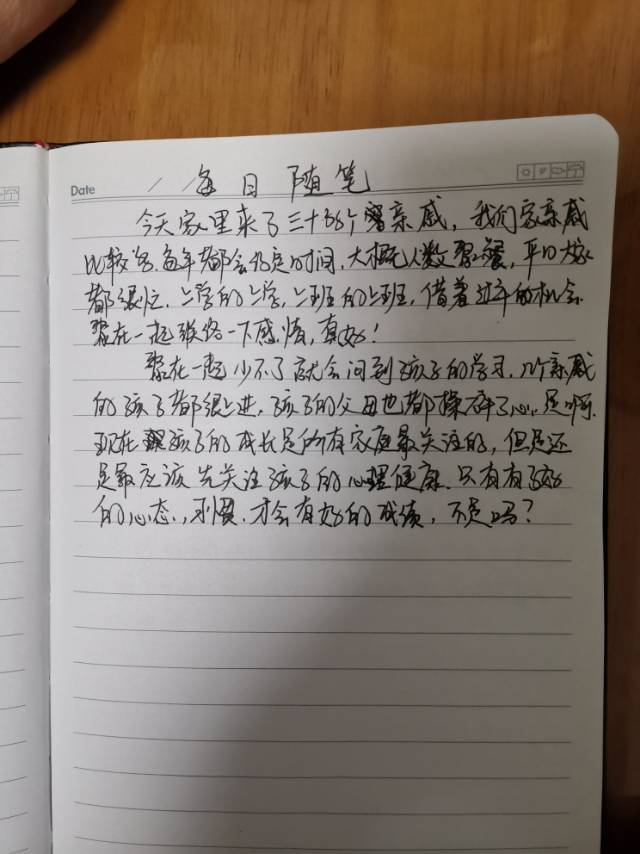 Date
每日随笔
今天家里来了三十多个亲戚，我们家亲戚
比较多，每年都会约定时间，大概人数聚餐，平日大家
都很忙．上学的上学，上班的上班，借着过年的机会．
聚在一起联络一下感情，真好！
聚在一起少不了就会问到孩子的学习，几个亲戚
的孩子都很上进，孩子的父母也都操碎了心，是啊．
现在孩子的成长是所有家庭最关注的，但是还
是最应该先关注孩子的心理健康．只有有了好
的心态，习惯．才会有好的成绩，不是吗？